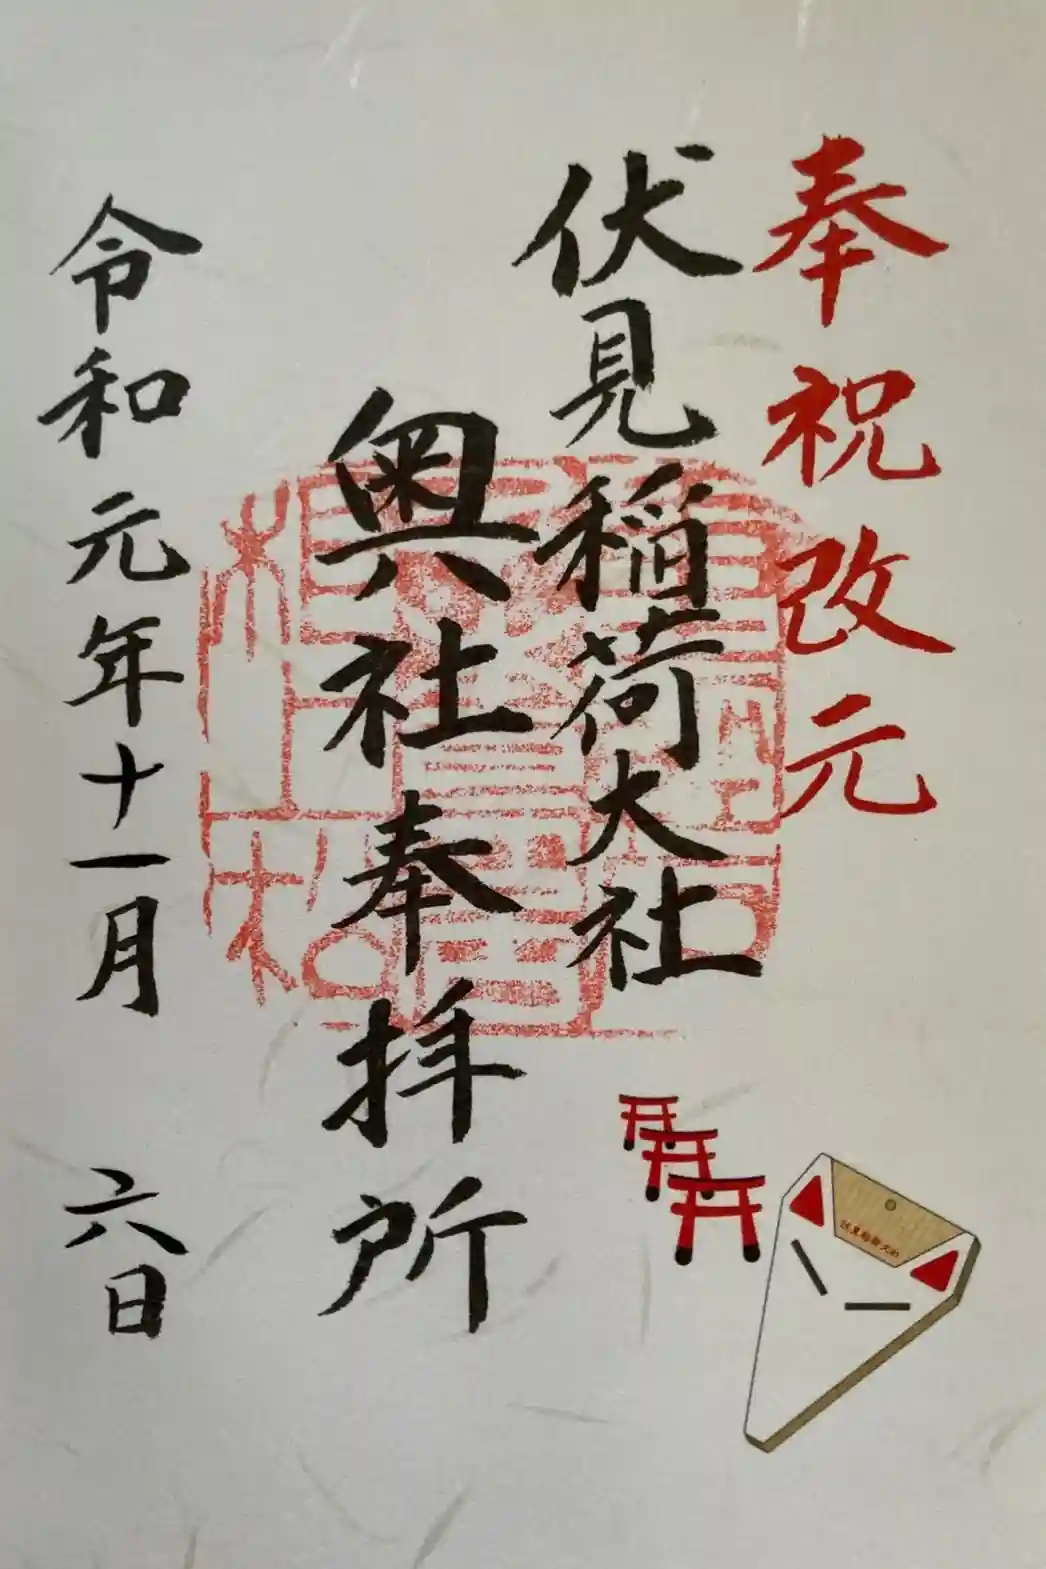 奉祝改元
伏見稲荷大社
奥社奉拝所
令和元年十一月 六日
伏見稲荷大社